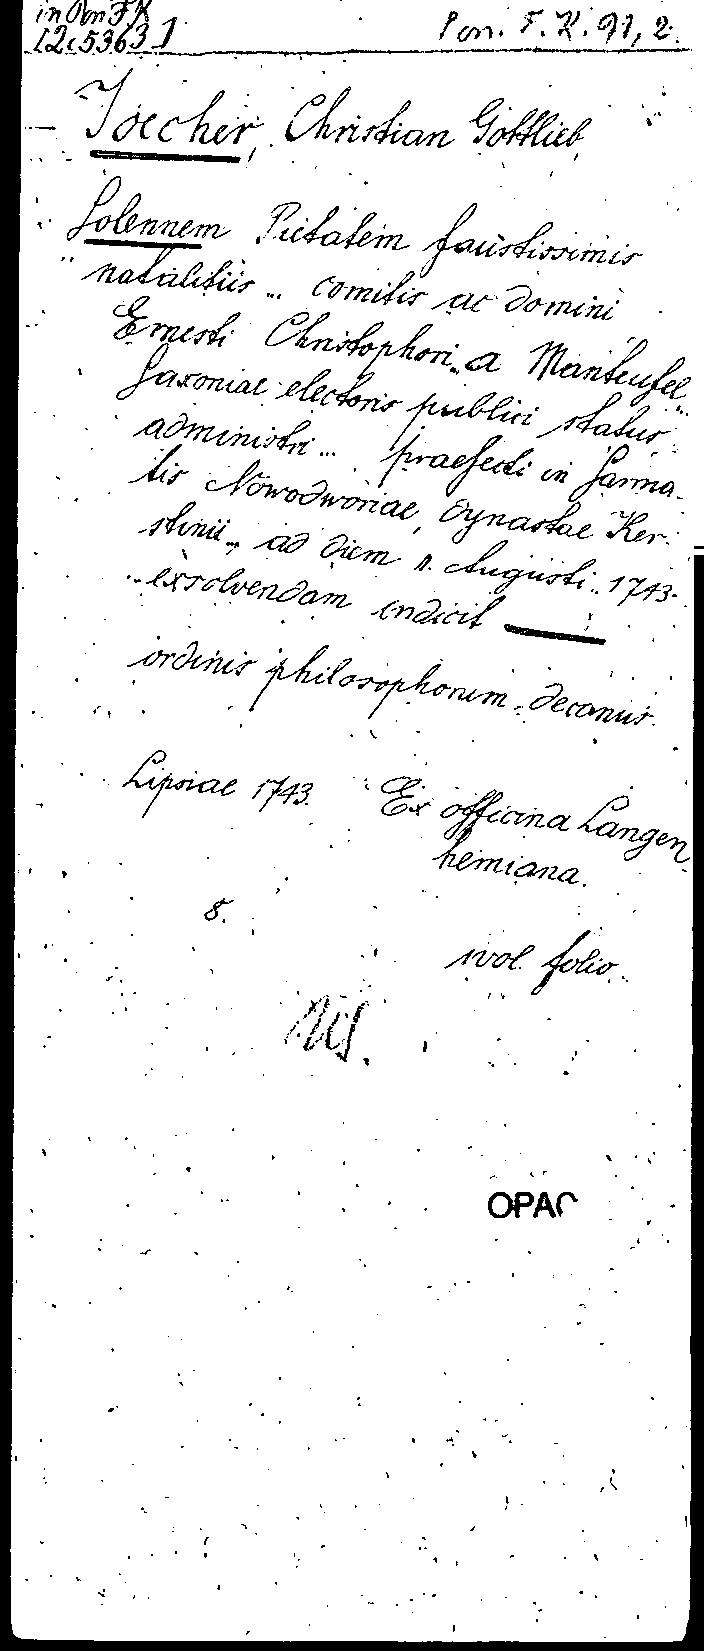 in Pon F.K
12, 5363 1
Pon. F. K. 91, 2.
Joecher, Christian Gottlieb
Solennem Pietatem faustissimis
natalitiis ... comitis ac domini
Ernesti Christophori .. a Manteufel
Saxoniae electoris publici status
administri ... praefecti in Sarma-
tis Nowodworiae, Dynastae Ker-
stinii .. ad diem 11. Augusti .. 1743.
exsolvendam indicit ———
ordinis philosophorum .. decanus.
Lipsiae 1743. Ex officina Langen
hemiana.
8.
folio
OPAC